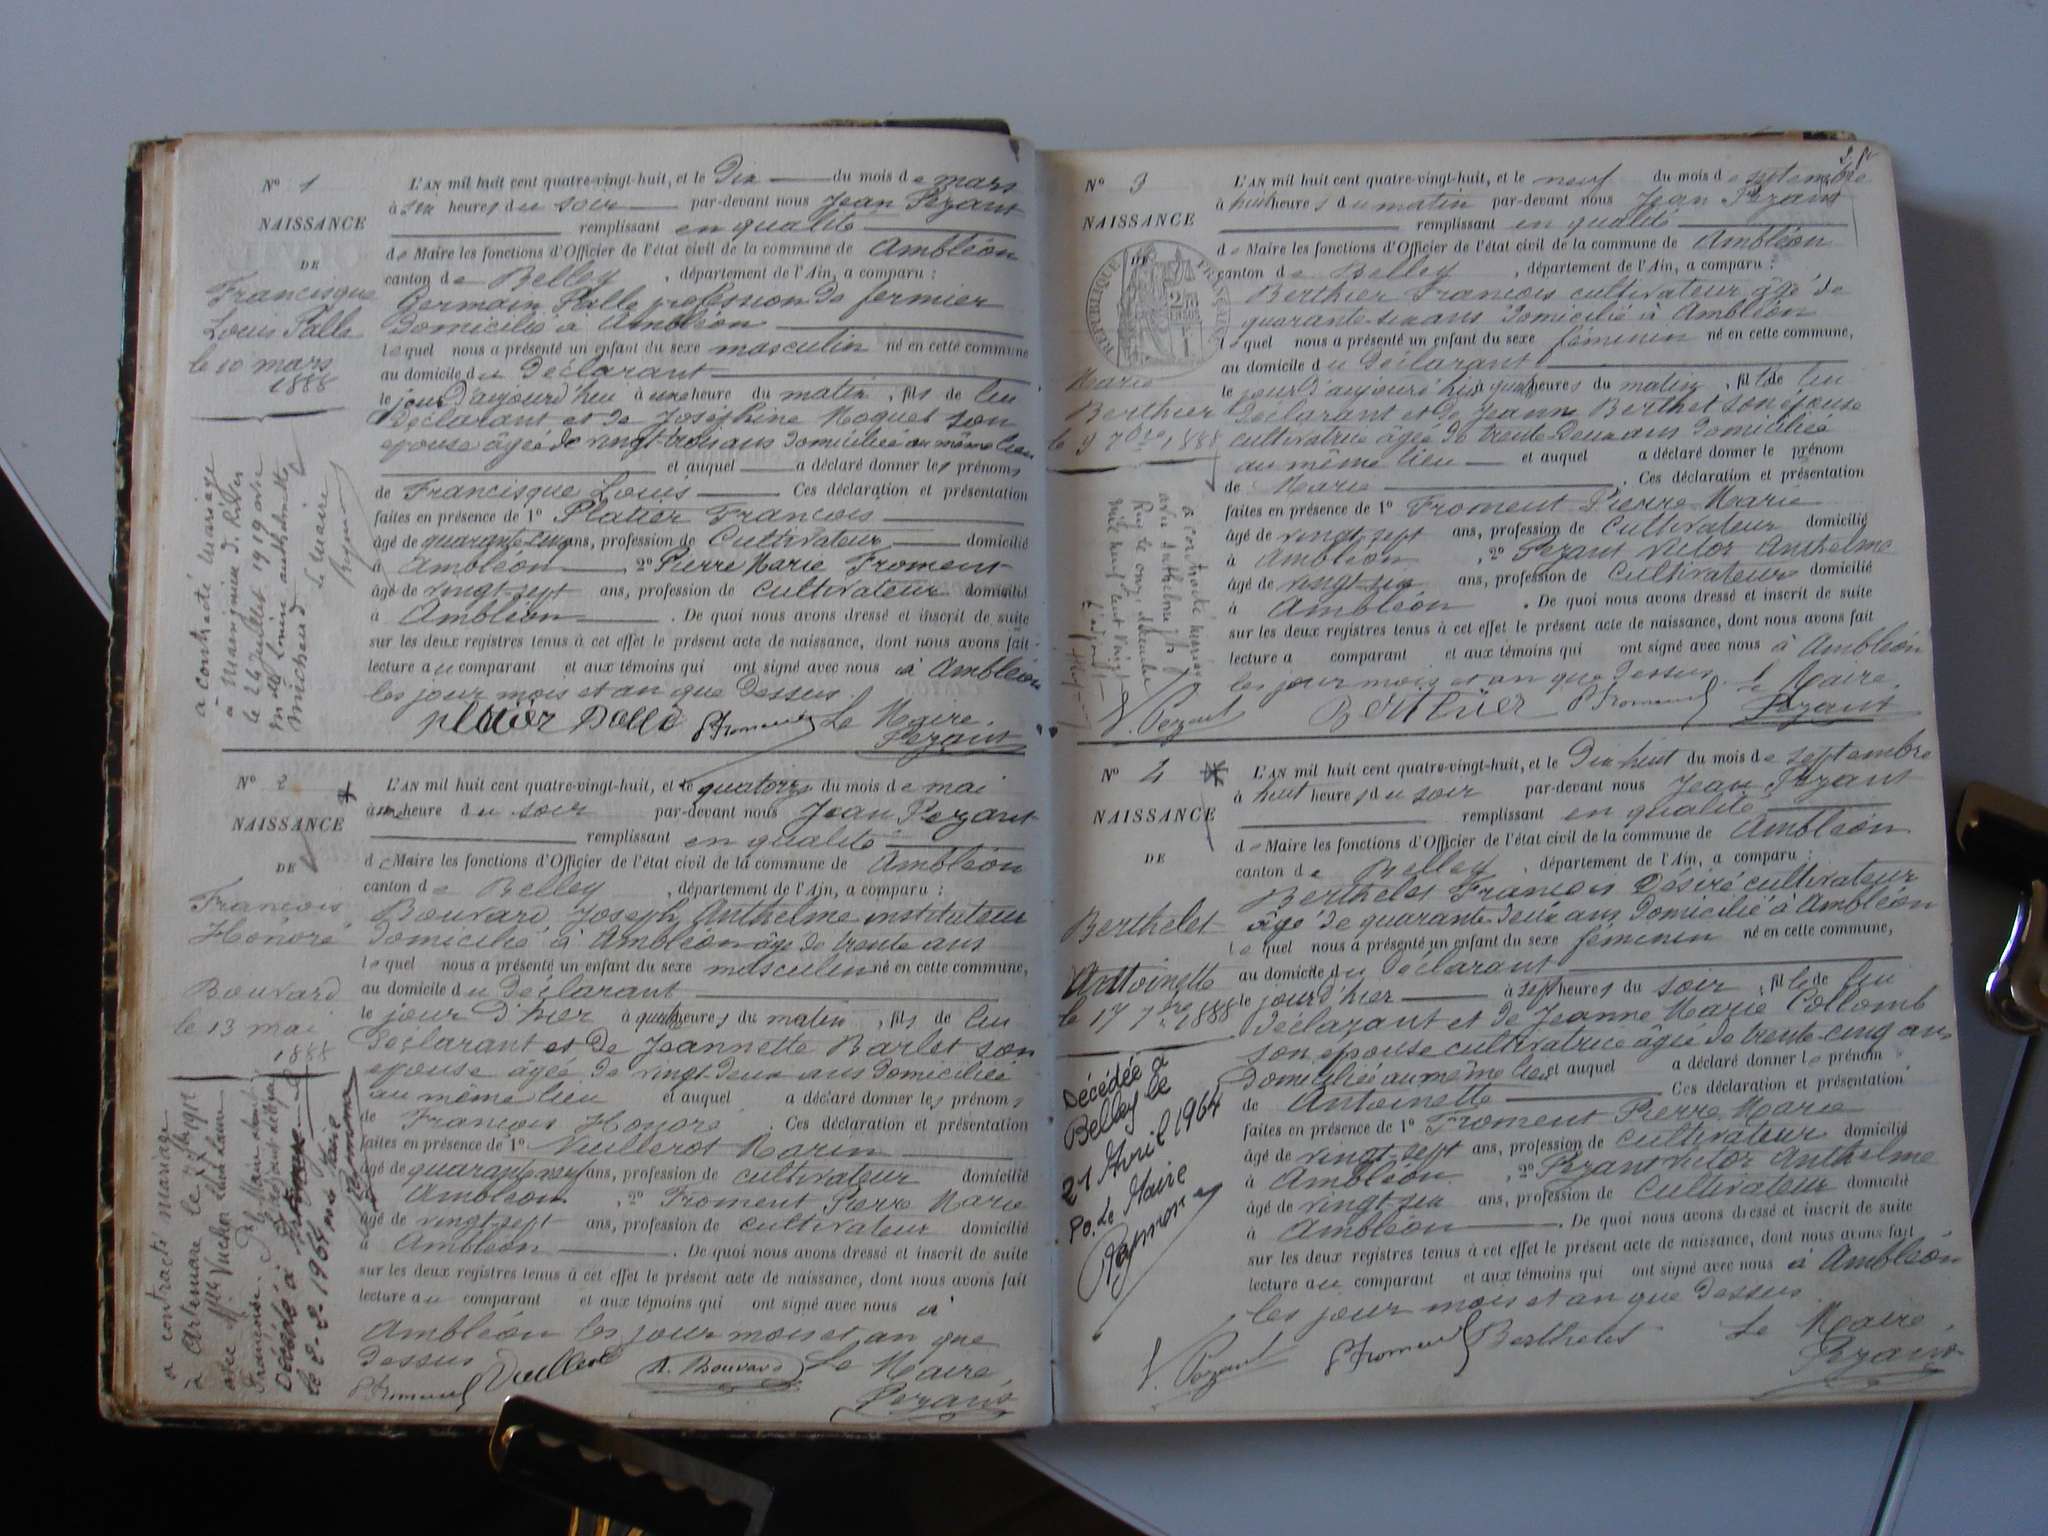 N° 1
NAISSANCE
DE
Francisque
Louis Palle
le 10 mars
1888
L'AN mil huit cent quatre-vingt-huit, et le Dix du mois de mars
à six heures du soir par-devant nous Jean Pezant
remplissant en qualité
de Maire les fonctions d'Officier de l'état civil de la commune de Ambléon
canton de Belley, département de l'Ain, a comparu :
Germain Palle profession de fermier
Domicilié à Ambléon
lequel nous a présenté un enfant du sexe masculin né en cette commune
au domicile du Déclarant
le jour d'aujourd'hui à une heure du matin, fils de lui
Déclarant et de Joséphine Moquet son
épouse âgée de vingt-trois ans domiciliée au même lieu
et auquel a déclaré donner les prénoms
de Francisque Louis Ces déclaration et présentation
faites en présence de 1° Platier François
âgé de quarante-cinq ans, profession de Cultivateur domicilié
à Ambléon 2° Pierre Marie Froment
âgé de vingt-sept ans, profession de cultivateur domicilié
à Ambléon. De quoi nous avons dressé et inscrit de suite
sur les deux registres tenus à cet effet le présent acte de naissance, dont nous avons fait
lecture au comparant et aux témoins qui ont signé avec nous à Ambléon
les jour mois et an que dessus.
platier Palle P Froment Le Maire
Pezant
a contracté mariage
à Marignieu d. Rives
le 26 Juillet 1919 avec
Michaud
Le Maire
N° 2
NAISSANCE
DE
François
Honoré
Bouvard
le 13 mai
1888
L'AN mil huit cent quatre-vingt-huit, et le quatorze du mois de mai
à une heure du soir par-devant nous Jean Pezant
remplissant en qualité
de Maire les fonctions d'Officier de l'état civil de la commune de Ambléon
canton de Belley, département de l'Ain, a comparu :
Bouvard Joseph Anthelme instituteur
domicilié à Ambléon âgé de trente ans
lequel nous a présenté un enfant du sexe masculin né en cette commune,
au domicile du Déclarant
le jour d'hier à quatre heures du matin, fils de lui
Déclarant et de Jeannette Barlet son
épouse âgée de vingt-deux ans domiciliée
au même lieu et auquel a déclaré donner les prénoms
de François Honoré. Ces déclaration et présentation
faites en présence de 1° Vuillerot Marin
âgé de quarante neuf ans, profession de cultivateur domicilié
Ambléon 2° Froment Pierre Marie
âgé de vingt-sept ans, profession de cultivateur domicilié
à Ambléon. De quoi nous avons dressé et inscrit de suite
sur les deux registres tenus à cet effet le présent acte de naissance, dont nous avons fait
lecture au comparant et aux témoins qui ont signé avec nous à
Ambléon les jour mois et an que
dessus
P Froment Vuillerot A. Bouvard Le Maire
Pezant
a contracté mariage
à Artemare le 1912
avec Mlle
Françoise. Le Maire
Décédé à
le 2-2-1964
N° 3
NAISSANCE
RÉPUBLIQUE FRANÇAISE
Marie
Berthier
le 9 7bre 1888
L'AN mil huit cent quatre-vingt-huit, et le neuf du mois de septembre
à huit heures du matin par-devant nous Jean Pezant
remplissant en qualité
de Maire les fonctions d'Officier de l'état civil de la commune de Ambléon
canton de Belley, département de l'Ain, a comparu :
Berthier François cultivateur âgé de
quarante-six ans domicilié à Ambléon
lequel nous a présenté un enfant du sexe féminin né en cette commune,
au domicile du Déclarant
le jour d'aujourd'hui à quatre heures du matin, fille de lui
Déclarant et de Jeanne Berthet son épouse
cultivatrice âgée de trente-deux ans domiciliée
au même lieu et auquel a déclaré donner le prénom
de Marie. Ces déclaration et présentation
faites en présence de 1° Froment Pierre Marie
âgé de vingt-sept ans, profession de Cultivateur domicilié
à Ambléon, 2° Pezant Victor Anthelme
âgé de vingt-six ans, profession de Cultivateur domicilié
à Ambléon. De quoi nous avons dressé et inscrit de suite
sur les deux registres tenus à cet effet le présent acte de naissance, dont nous avons fait
lecture a comparant et aux témoins qui ont signé avec nous à Ambléon
les jour mois et an que dessus. Le Maire
V. Pezant Berthier P Froment Pezant
a contracté mariage
avec Anthelme
le onze décembre
mil neuf cent vingt
l'adjoint
N° 4
NAISSANCE
DE
Berthelet
Antoinette
le 17 7bre 1888
L'AN mil huit cent quatre-vingt-huit, et le Dix huit du mois de septembre
à huit heures du soir par-devant nous Jean Pezant
remplissant en qualité
de Maire les fonctions d'Officier de l'état civil de la commune de Ambléon
canton de Belley, département de l'Ain, a comparu :
Berthelet François Désiré cultivateur
âgé de quarante-deux ans domicilié à Ambléon
lequel nous a présenté un enfant du sexe féminin né en cette commune,
au domicile du Déclarant
le jour d'hier à sept heures du soir, fille de lui
déclarant et de Jeanne Marie Collomb
son épouse cultivatrice âgée de trente-cinq ans
Domiciliée au même lieu et auquel a déclaré donner le prénom
de Antoinette Ces déclaration et présentation
faites en présence de 1° Froment Pierre Marie
âgé de vingt-sept ans, profession de cultivateur domicilié
à Ambléon, 2° Pezant Victor Anthelme
âgé de vingt-six ans, profession de Cultivateur domicilié
à Ambléon. De quoi nous avons dressé et inscrit de suite
sur les deux registres tenus à cet effet le présent acte de naissance, dont nous avons fait
lecture au comparant et aux témoins qui ont signé avec nous à Ambléon
les jour mois et an que dessus
V. Pezant P Froment Berthelet Le Maire
Pezant
Décédée à
Belley le
21 Avril 1964
Po. Le Maire